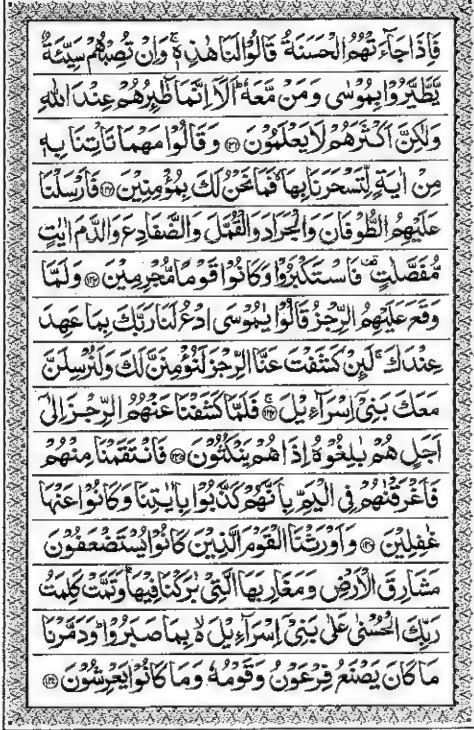 فَاِذَا جَآءَتْهُمُ الْحَسَنَةُ قَالُوْا لَنَا هٰذِهٖ ۚ وَاِنْ تُصِبْهُمْ سَيِّئَةٌ
يَّطَّيَّرُوْا بِمُوْسٰى وَمَنْ مَّعَهٗ ؕ اَلَاۤ اِنَّمَا طٰٓئِرُهُمْ عِنْدَ اللّٰهِ
وَلٰكِنَّ اَكْثَرَهُمْ لَا يَعْلَمُوْنَ ﴿۱۳۱﴾ وَقَالُوْا مَهْمَا تَاْتِنَا بِهٖ
مِنْ اٰيَةٍ لِّتَسْحَرَنَا بِهَا ۙ فَمَا نَحْنُ لَكَ بِمُؤْمِنِيْنَ ﴿۱۳۲﴾ فَاَرْسَلْنَا
عَلَيْهِمُ الطُّوْفَانَ وَالْجَرَادَ وَالْقُمَّلَ وَالضَّفَادِعَ وَالدَّمَ اٰيٰتٍ
مُّفَصَّلٰتٍ فَاسْتَكْبَرُوْا وَكَانُوْا قَوْمًا مُّجْرِمِيْنَ ﴿۱۳۳﴾ وَلَمَّا
وَقَعَ عَلَيْهِمُ الرِّجْزُ قَالُوْا يٰمُوْسَى ادْعُ لَنَا رَبَّكَ بِمَا عَهِدَ
عِنْدَكَ ۚ لَئِنْ كَشَفْتَ عَنَّا الرِّجْزَ لَنُؤْمِنَنَّ لَكَ وَلَنُرْسِلَنَّ
مَعَكَ بَنِيْۤ اِسْرَآءِيْلَ ﴿۱۳۴﴾ فَلَمَّا كَشَفْنَا عَنْهُمُ الرِّجْزَ اِلٰۤى
اَجَلٍ هُمْ بٰلِغُوْهُ اِذَا هُمْ يَنْكُثُوْنَ ﴿۱۳۵﴾ فَانْتَقَمْنَا مِنْهُمْ
فَاَغْرَقْنٰهُمْ فِى الْيَمِّ بِاَنَّهُمْ كَذَّبُوْا بِاٰيٰتِنَا وَكَانُوْا عَنْهَا
غٰفِلِيْنَ ﴿۱۳۶﴾ وَاَوْرَثْنَا الْقَوْمَ الَّذِيْنَ كَانُوْا يُسْتَضْعَفُوْنَ
مَشَارِقَ الْاَرْضِ وَمَغَارِبَهَا الَّتِيْ بٰرَكْنَا فِيْهَا ؕ وَتَمَّتْ كَلِمَتُ
رَبِّكَ الْحُسْنٰى عَلٰى بَنِيْۤ اِسْرَآءِيْلَ ۙ بِمَا صَبَرُوْا ؕ وَدَمَّرْنَا
مَا كَانَ يَصْنَعُ فِرْعَوْنُ وَقَوْمُهٗ وَمَا كَانُوْا يَعْرِشُوْنَ ﴿۱۳۷﴾